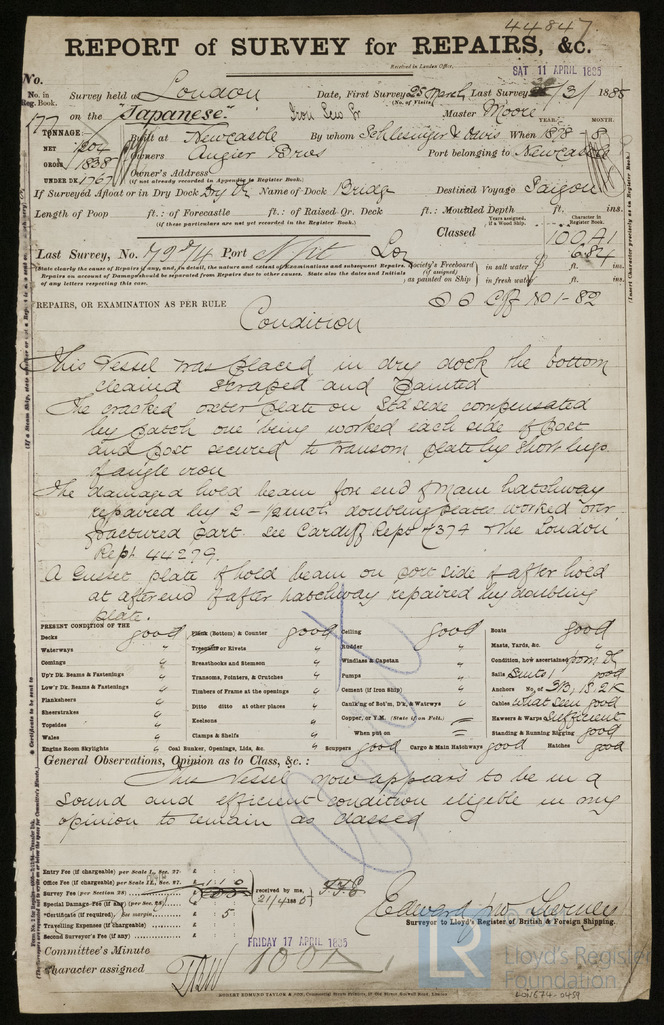 44847
REPORT of SURVEY for REPAIRS, &c.
Received in London Office,
SAT 11 APRIL 1885
No.
No. in Reg. Book.
Survey held at London
Date, First Survey 25 March Last Survey 3/1885
(No. of Visits)
177
on the "Japanese"
Iron
Master Moore
TONNAGE:
NET 1204
GROSS 1838
UNDER DK. 1767
Built at Newcastle
By whom Schlesinger & Davis When 1878 - 8
YEAR. MONTH.
Owners Angier Bros
Port belonging to Newcastle
Owner's Address
(If not already recorded in Appendix to Register Book.)
If Surveyed Afloat or in Dry Dock Dry Dk Name of Dock Bridge
Destined Voyage Saigon
Length of Poop ft.: of Forecastle ft.: of Raised Qr. Deck ft.: Moulded Depth ft. ins.
(if these particulars are not yet recorded in the Register Book.)
Classed
Years assigned, if a Wood Ship.
Character in Register Book.
100A1
6.84
Last Survey, No. Port Lon
Society's Freeboard (if assigned) as painted on Ship
in salt water ft. ins.
in fresh water ft. ins.
(State clearly the cause of Repairs if any, and, in detail, the nature and extent of Examinations and subsequent Repairs. Repairs on account of Damage should be separated from Repairs due to other causes. State also the dates and Initials of any letters respecting this case.
REPAIRS, OR EXAMINATION AS PER RULE
No 1-82
Condition
This Vessel was placed in dry dock the bottom
cleaned scraped and painted
The cracked oxter plate on Stbd side compensated
by patch one being worked each side of post
and post secured to transom plate by short lugs
of angle iron
The damaged hold beam fore end of Main hatchway
repaired by 2 - 1/2 inch doubling plates worked over
fractured part. See Cardiff Rept 4374 & the London
Rept 44279.
A Gusset plate of hold beam on port side of after hold
at after end of after hatchway repaired by doubling
plate.
PRESENT CONDITION OF THE
Decks good
Waterways "
Comings "
Up'r Dk. Beams & Fastenings "
Low'r Dk. Beams & Fastenings "
Planksheers "
Sheerstrakes "
Topsides "
Wales "
Engine Room Skylights "
Plank (Bottom) & Counter good
Treenails or Rivets "
Breasthooks and Stemson "
Transoms, Pointers, & Crutches "
Timbers of Frame at the openings "
Ditto ditto at other places "
Keelsons "
Clamps & Shelfs "
Coal Bunker, Openings, Lids, &c. "
Ceiling good
Rudder "
Windlass & Capstan "
Pumps "
Cement (if Iron Ship) "
Caulk'ng of Bot'm, D'k, & Watrwys "
Copper, or Y.M. (State if on Felt.) =
When put on =
Scuppers good
Cargo & Main Hatchways good
Boats good
Masts, Yards, &c. "
Condition, how ascertained from dk
Sails Suits 1 good
Anchors No. of 3B, 1S. 2K
Cables what seen good
Hawsers & Warps Sufficient
Standing & Running Rigging good
Hatches good
General Observations, Opinion as to Class, &c.:
This Vessel now appears to be in a
sound and efficient condition eligible in my
opinion to remain as classed
Entry Fee (if chargeable) per Scale I., Sec. 27. £ : :
Office Fee (if chargeable) per Scale II., Sec. 27. £ 1 : 1 : 0
Survey Fee (per Section 28) £
Special Damage Fee (if any) (per Sec. 28) £ : :
*Certificate (if required), See margin £ : 5
Travelling Expenses (if chargeable) £ : :
Second Surveyor's Fee (if any) £ : :
received by me,
21/4/1885
Edward
Surveyor to Lloyd's Register of British & Foreign Shipping.
Committee's Minute
FRIDAY 17 APRIL 1885
Character assigned
100A1
Cert
ROBERT EDMUND TAYLOR & SON
LR
Lloyd's Register
Foundation
LON674-0459